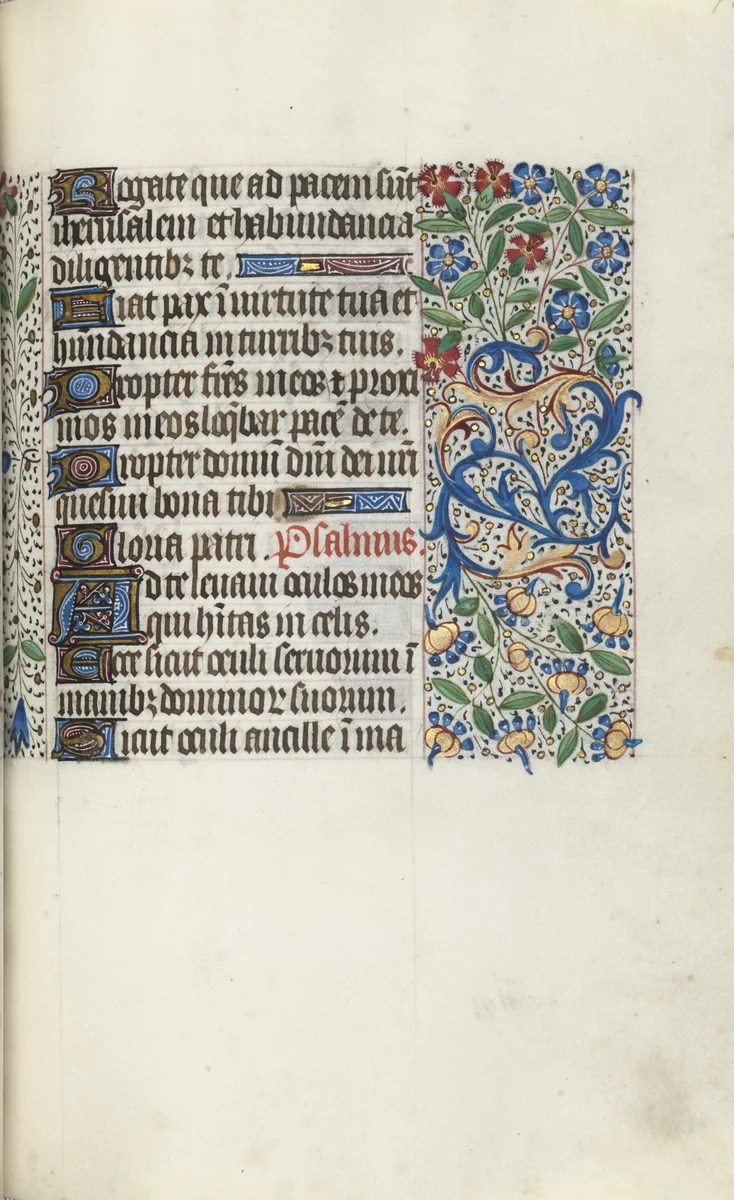 Rogate que ad pacem sūt
iherusalem et habundancia
diligentibꝫ te.
Fiat pax ī uirtute tua et
hundancia in turribꝫ tuis.
Propter frēs meos ⁊ proxi
mos meos loq̄bar pacē de te.
Propter domū dnī dei nrī
quesiui bona tibi
Gloria patri. Psalmus.
Ad te leuaui oculos meos
qui hītas in celis.
Ecce sicut oculi seruorum ī
manibꝫ dominoꝝ suorum.
Sicut oculi ancille ī ma